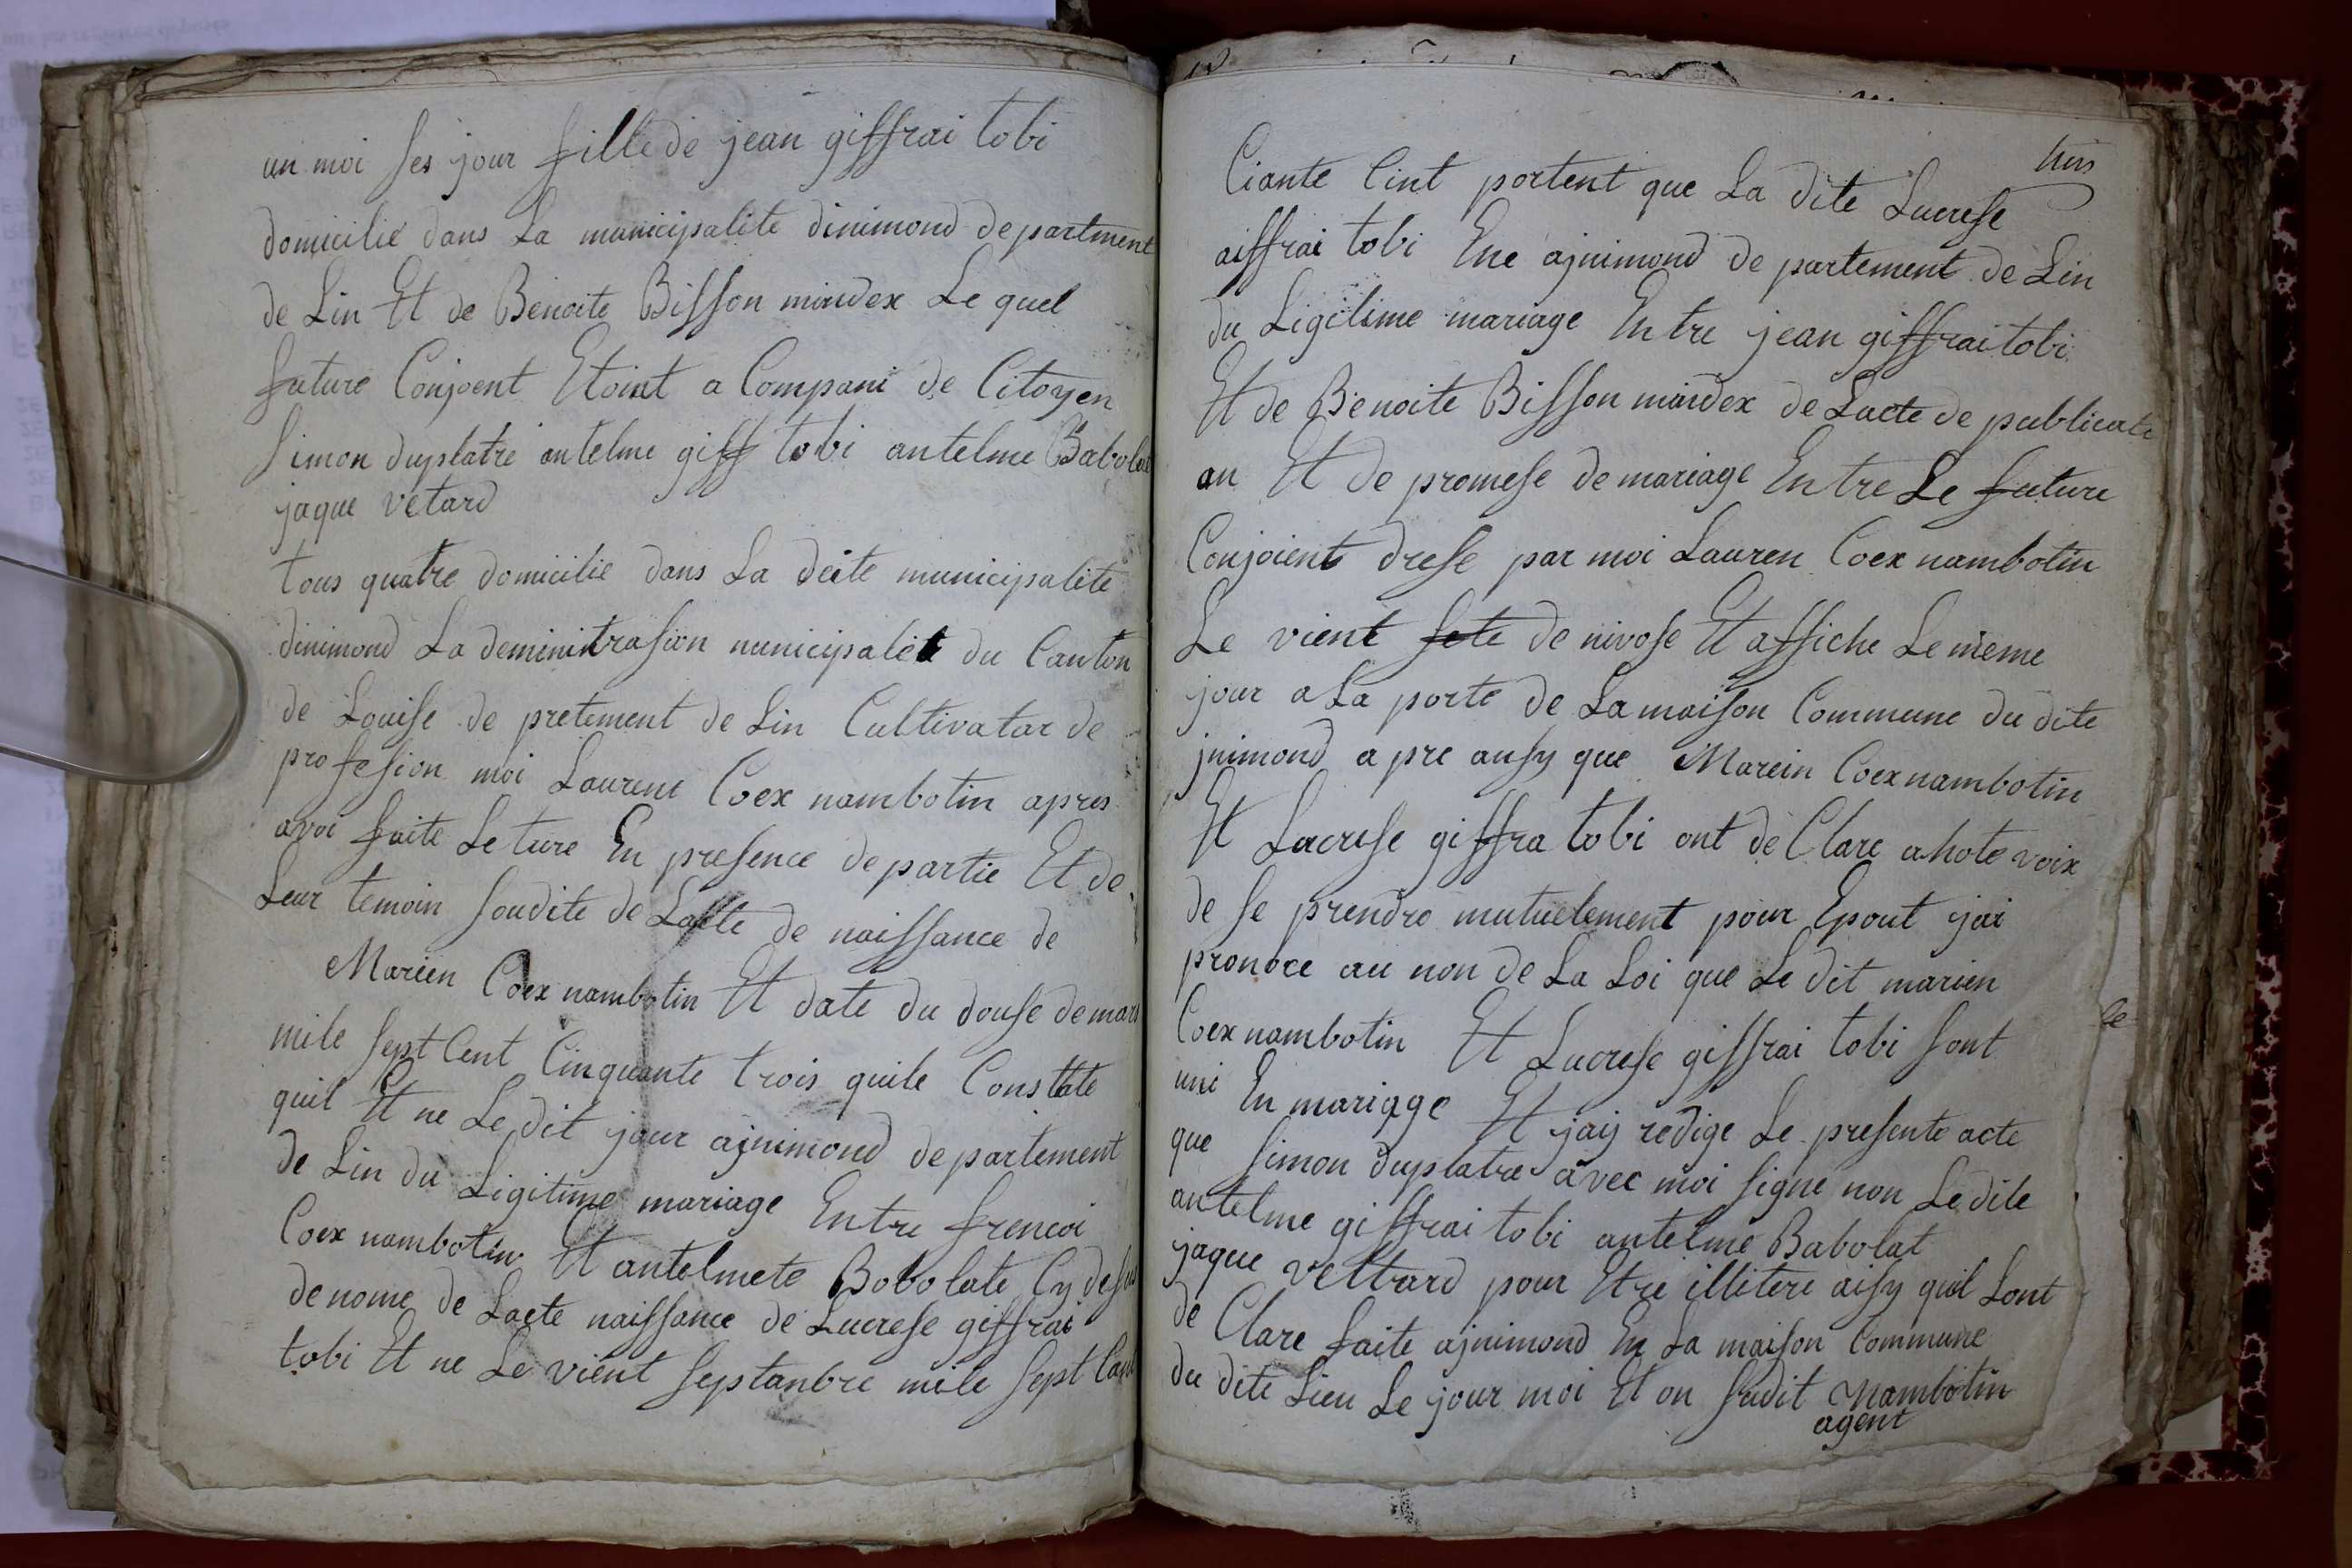 un moi ses jour fille de jean giffrai tobi
domicilié dans La municipalite dinimond department
de Lin Et de Benoite Bisson miudex Le quel
future Conjoent Etoint a Compani de Citoyen
simon duplatre antelme giff tobi antelme Babolat
jaque vetard
tous quatre domicilie dans La deite municipalite
dinimond La deminitrasion municipalite du Canton
de Louise de pretement de Lin Cultivatar de
profesion moi Laurent Coex nambotin apres
avoi faite Leture En presence de partie Et de
Leur temoin soudite de Lacte de naissance de
Marien Coex nambotin Et date du douse de mars
mile sept Cent Cinquante trois quile Constate
quil Et ne Le dit jour ajnimond departement
de Lin du Ligitime mariage Entre frencoi
Coex nambotin Et antelmete Bobolate Cy desus
denome de Lacte naissance de Lucrese giffrai
tobi Et ne Le vient septanbre mile sept Cent
Ciante Cint portent que La dite Lucrese
aiffrai tobi Ene ajnimond de partement de Lin
du Ligitime mariage Entre jean giffrai tobi
Et de Benoite Bisson miudex de Lacte de publicati
an Et de promese de mariage Entre Le future
Conjoient drese par moi Lauren Coex nambotin
Le vient sete de nivose Et affiche Le meme
jour a La porte de La maison Commune du dite
jnimond a pre ausy que Marein Coex nambotin
Et Lucrese giffra tobi ont de Clare a hote voix
de se prendre mutuelement pour Epout jai
pronoce au non de La Loi que Le dit marien
Coex nambotin Et Lucrese giffrai tobi sont
uni En mariage Et jaij redige Le presente acte
que simon duplatre avec moi signe non Le dite
antelme giffrai tobi antelme Babolat
jaque veltard pour Etre illitere aisy quil Lont
de Clare faite ajnimond En La maison Commune
du dite Lieu Le jour moi Et on sudit Nambotin
agent